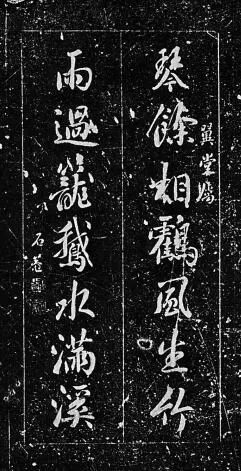 翼堂屬
琴餘相鶴風生竹
雨過籠鵝水滿溪
石菴